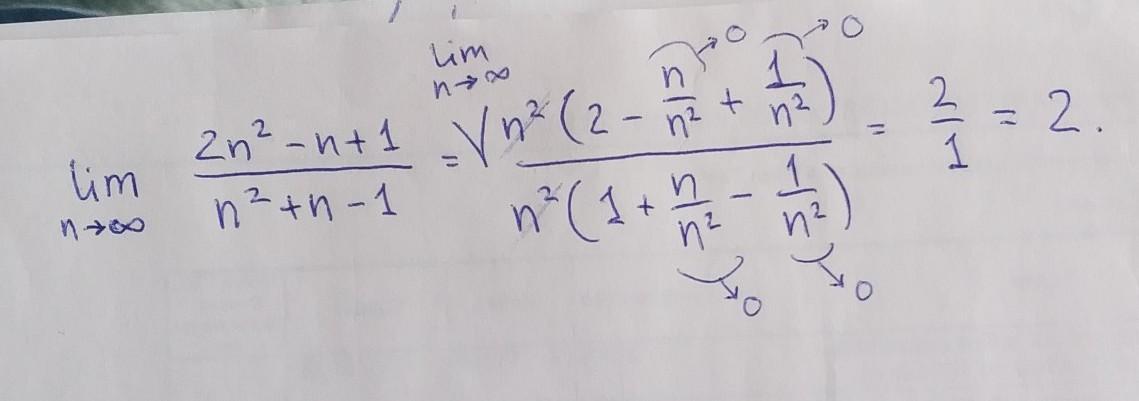 lim n→∞ (2n² - n + 1)/(n² + n - 1) = lim n→∞ (n²(2 - n/n² + 1/n²))/(n²(1 + n/n² - 1/n²)) = 2/1 = 2.
→0 →0
→0 →0